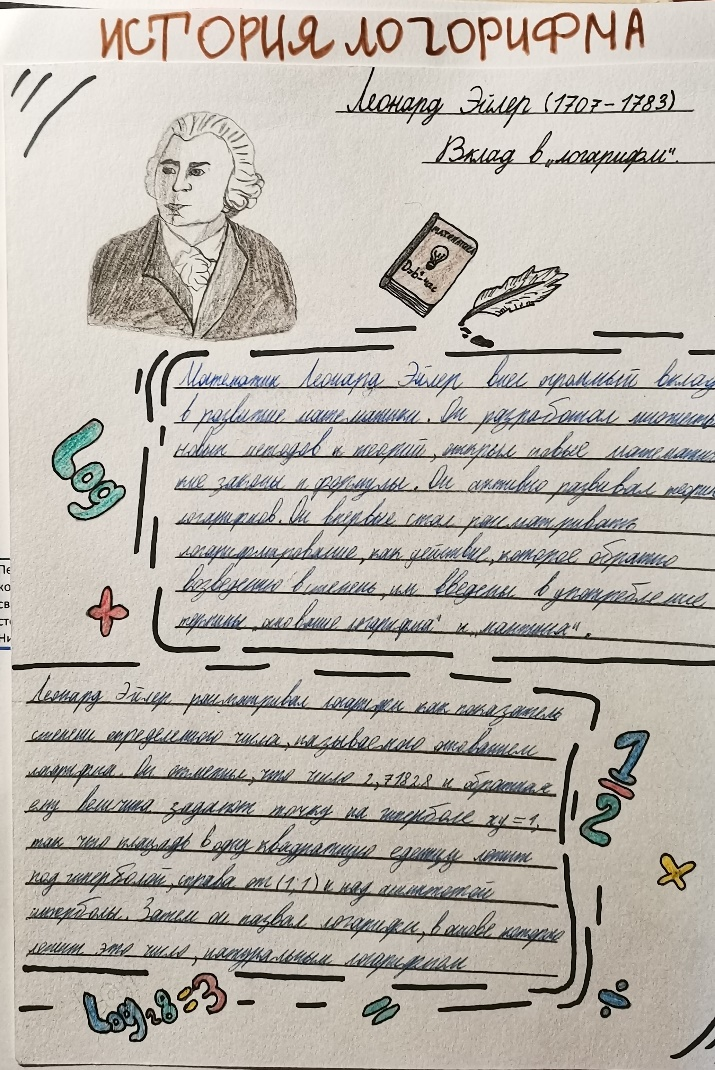 ИСТОРИЯ ЛОГОРИФМА
Леонард Эйлер (1707-1783)
Вклад в „логарифм“.
МАТЕМАТИКА
Математик Леонард Эйлер внес огромный вклад
в развитие математики. Он разработал множеств
новых методов и теорий, открыл новые математичес
кие законы и формулы. Он активно развивал теорию
логарифмов. Он впервые стал рассматривать
логарифмирование, как действие, которое обратно
возведению в степень, им введены в употребление
термины „основание логарифма“ и „мантисса“.
Log
+
Леонард Эйлер рассматривал логарифм как показатель
степени определенного числа, называемого основанием
логарифма. Он отметил, что число 2,71828 и обратная
ему величина задают точку на гиперболе xy=1,
так что площадь в одну квадратную единицу лежит
под гиперболой, справа от (1;1) и над асимптотой
гиперболы. Затем он назвал логарифм, в основе которого
лежит это число, натуральным логарифмом
1/2
×
Log₂8=3
=
÷
Пе
ко
св
сте
Ни